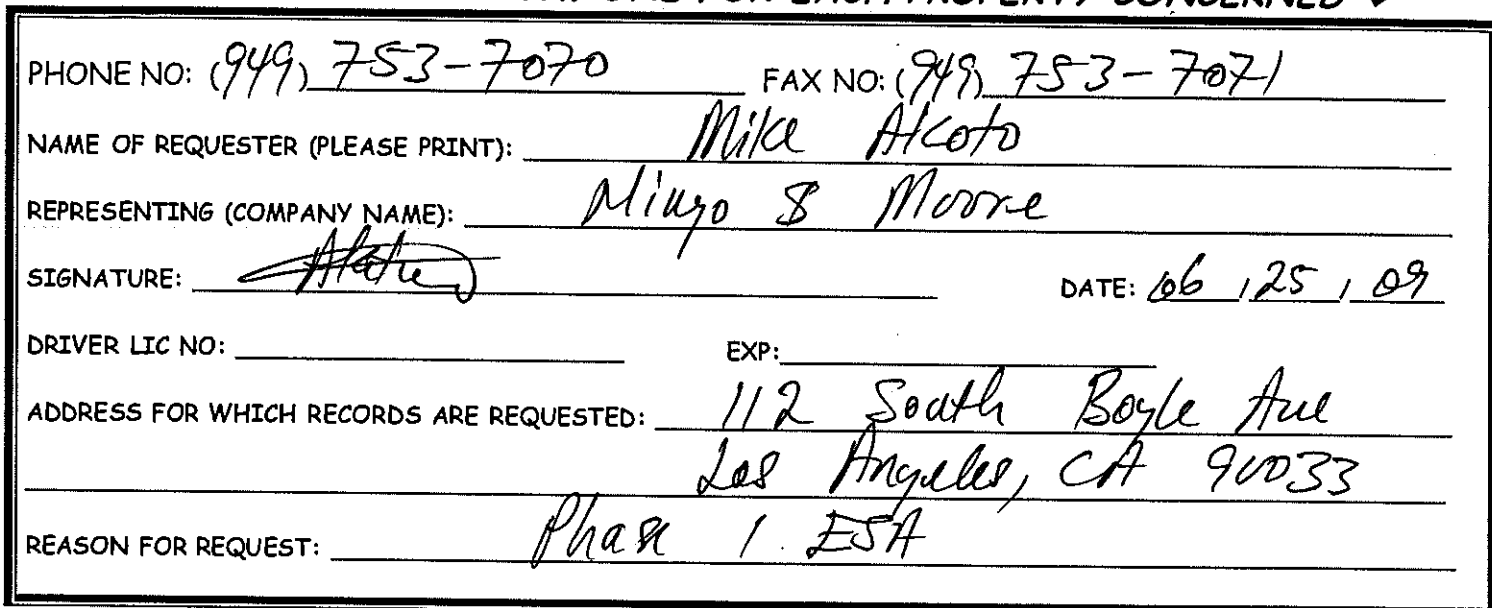 FOR EACH PROPERTY CONCERNED
PHONE NO: (949) 753-7070 FAX NO: (949) 753-7071
NAME OF REQUESTER (PLEASE PRINT): Mike Akoto
REPRESENTING (COMPANY NAME): & Moore
SIGNATURE: DATE: 06 / 25 / 09
DRIVER LIC NO: EXP:
ADDRESS FOR WHICH RECORDS ARE REQUESTED: 112 South Boyle Ave
Los Angeles, CA 90033
REASON FOR REQUEST: Phase 1. ESA